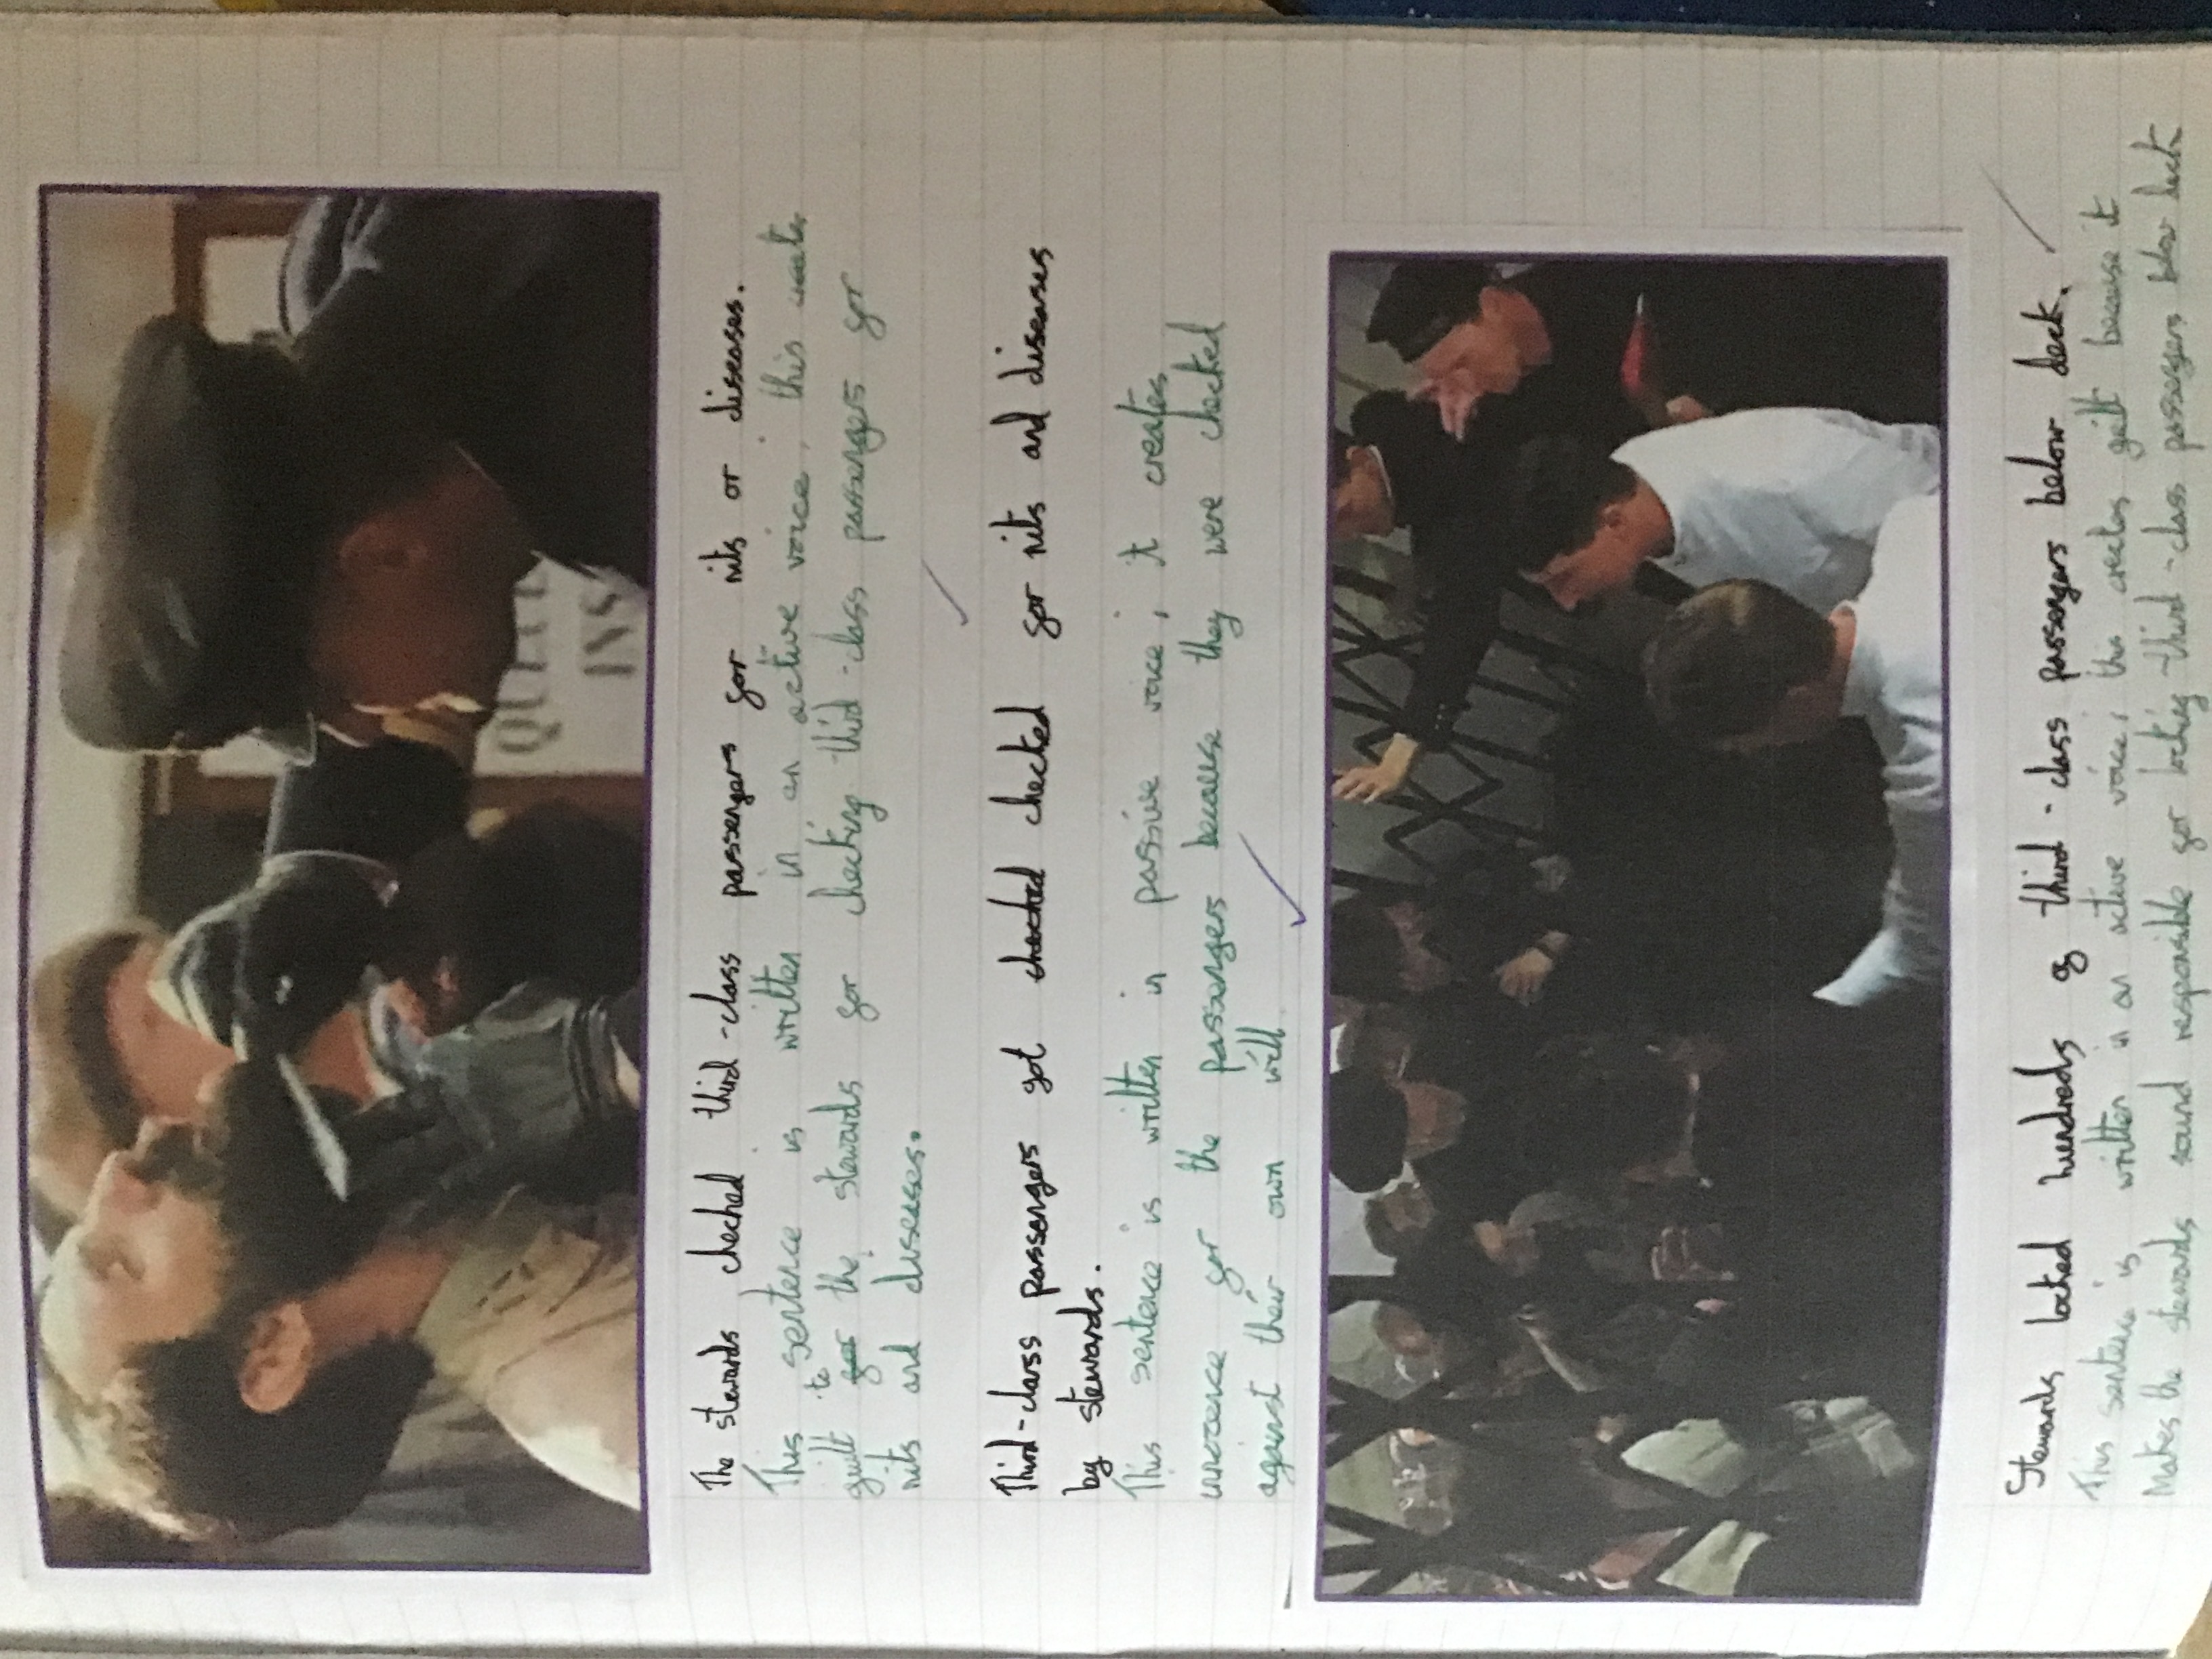 QUEUE
INS
The stewards checked third-class passengers for nits or diseases.
This sentence is written in an active voice; this
guilt to the stewards for checking third-class passengers for
nits and diseases.
Third-class passengers got checked checked for nits and diseases
by stewards.
This sentence is written in passive voice; it creates
innocence for the passengers because they were checked
against their own will.
Stewards locked hundreds of third-class passengers below deck.
This sentence is written in an active voice; this creates guilt because it
Makes the stewards sound responsible for locking third-class passengers below deck